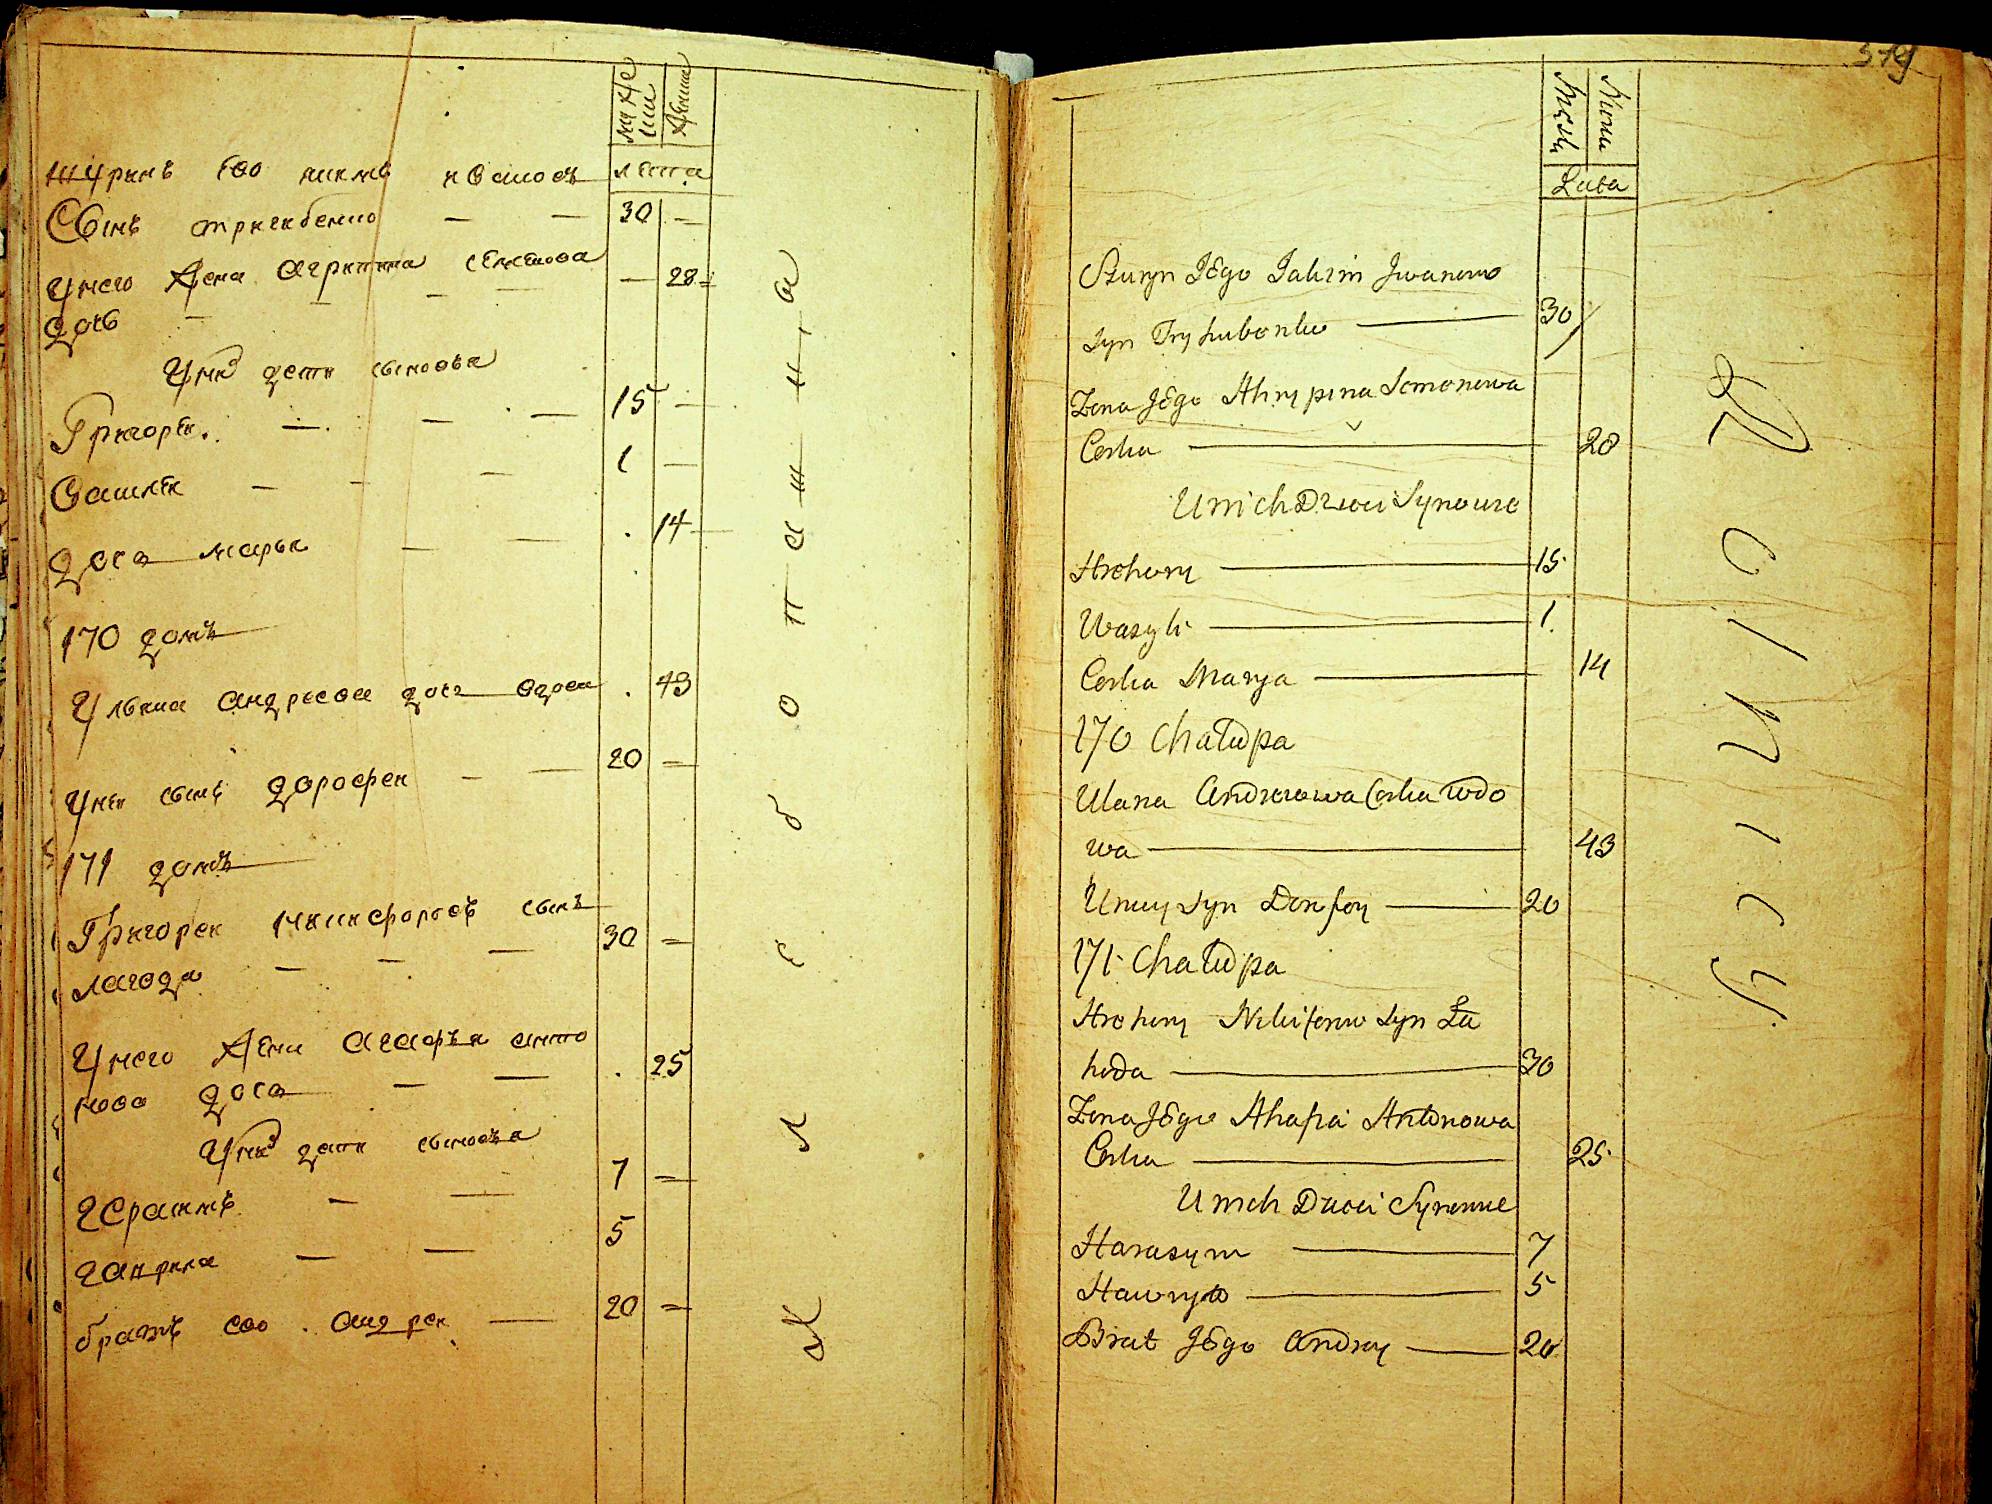 мужс
ши
Женш
лѣта
шуринъ Его якимъ ивановъ
Сынъ тригубенко — — 30 —
унего Жена Агрипина семенова
дочь — — — — — 28
Унихъ дети сыновья
Григорей — — — 15 —
Василей — — — 1 —
дочь марья — — 14
170 домъ
Ульяна андреева дочь вдова 43
Унеи сынъ дорофеи — — 20 —
171 домъ
Григореи никифоровъ сынъ
лагода — — — 30 —
Унего Жена агафья анто
нова дочь — — 25
Унихъ дети сыновья
герасимъ — — 7 —
гаврила — — 5
братъ его андреи — 20 —
К л е б а н ш и н а
379
Męska
Niewia
Lata
Szuryn Jego Jakim Jwanow
Syn Tryhubenko — 30
Zona Jego Ahrypina Semenowa
Corka — 28
Unich Dzieci Synowie
Hrehory — 15
Wasyli — 1
Corka Marya — 14
170 Chałupa
Ulana Andreiowa Corka wdo
wa — 43
Uniey Syn Dorofey — 20
171 Chałupa
Hrehory Nikiforow Syn La
hoda — 30
Zona Jego Ahafia Antonowa
Corka — 25
Unich Dzieci Synowie
Harasym — 7
Hawryło — 5
Brat Jego Andrey — 20